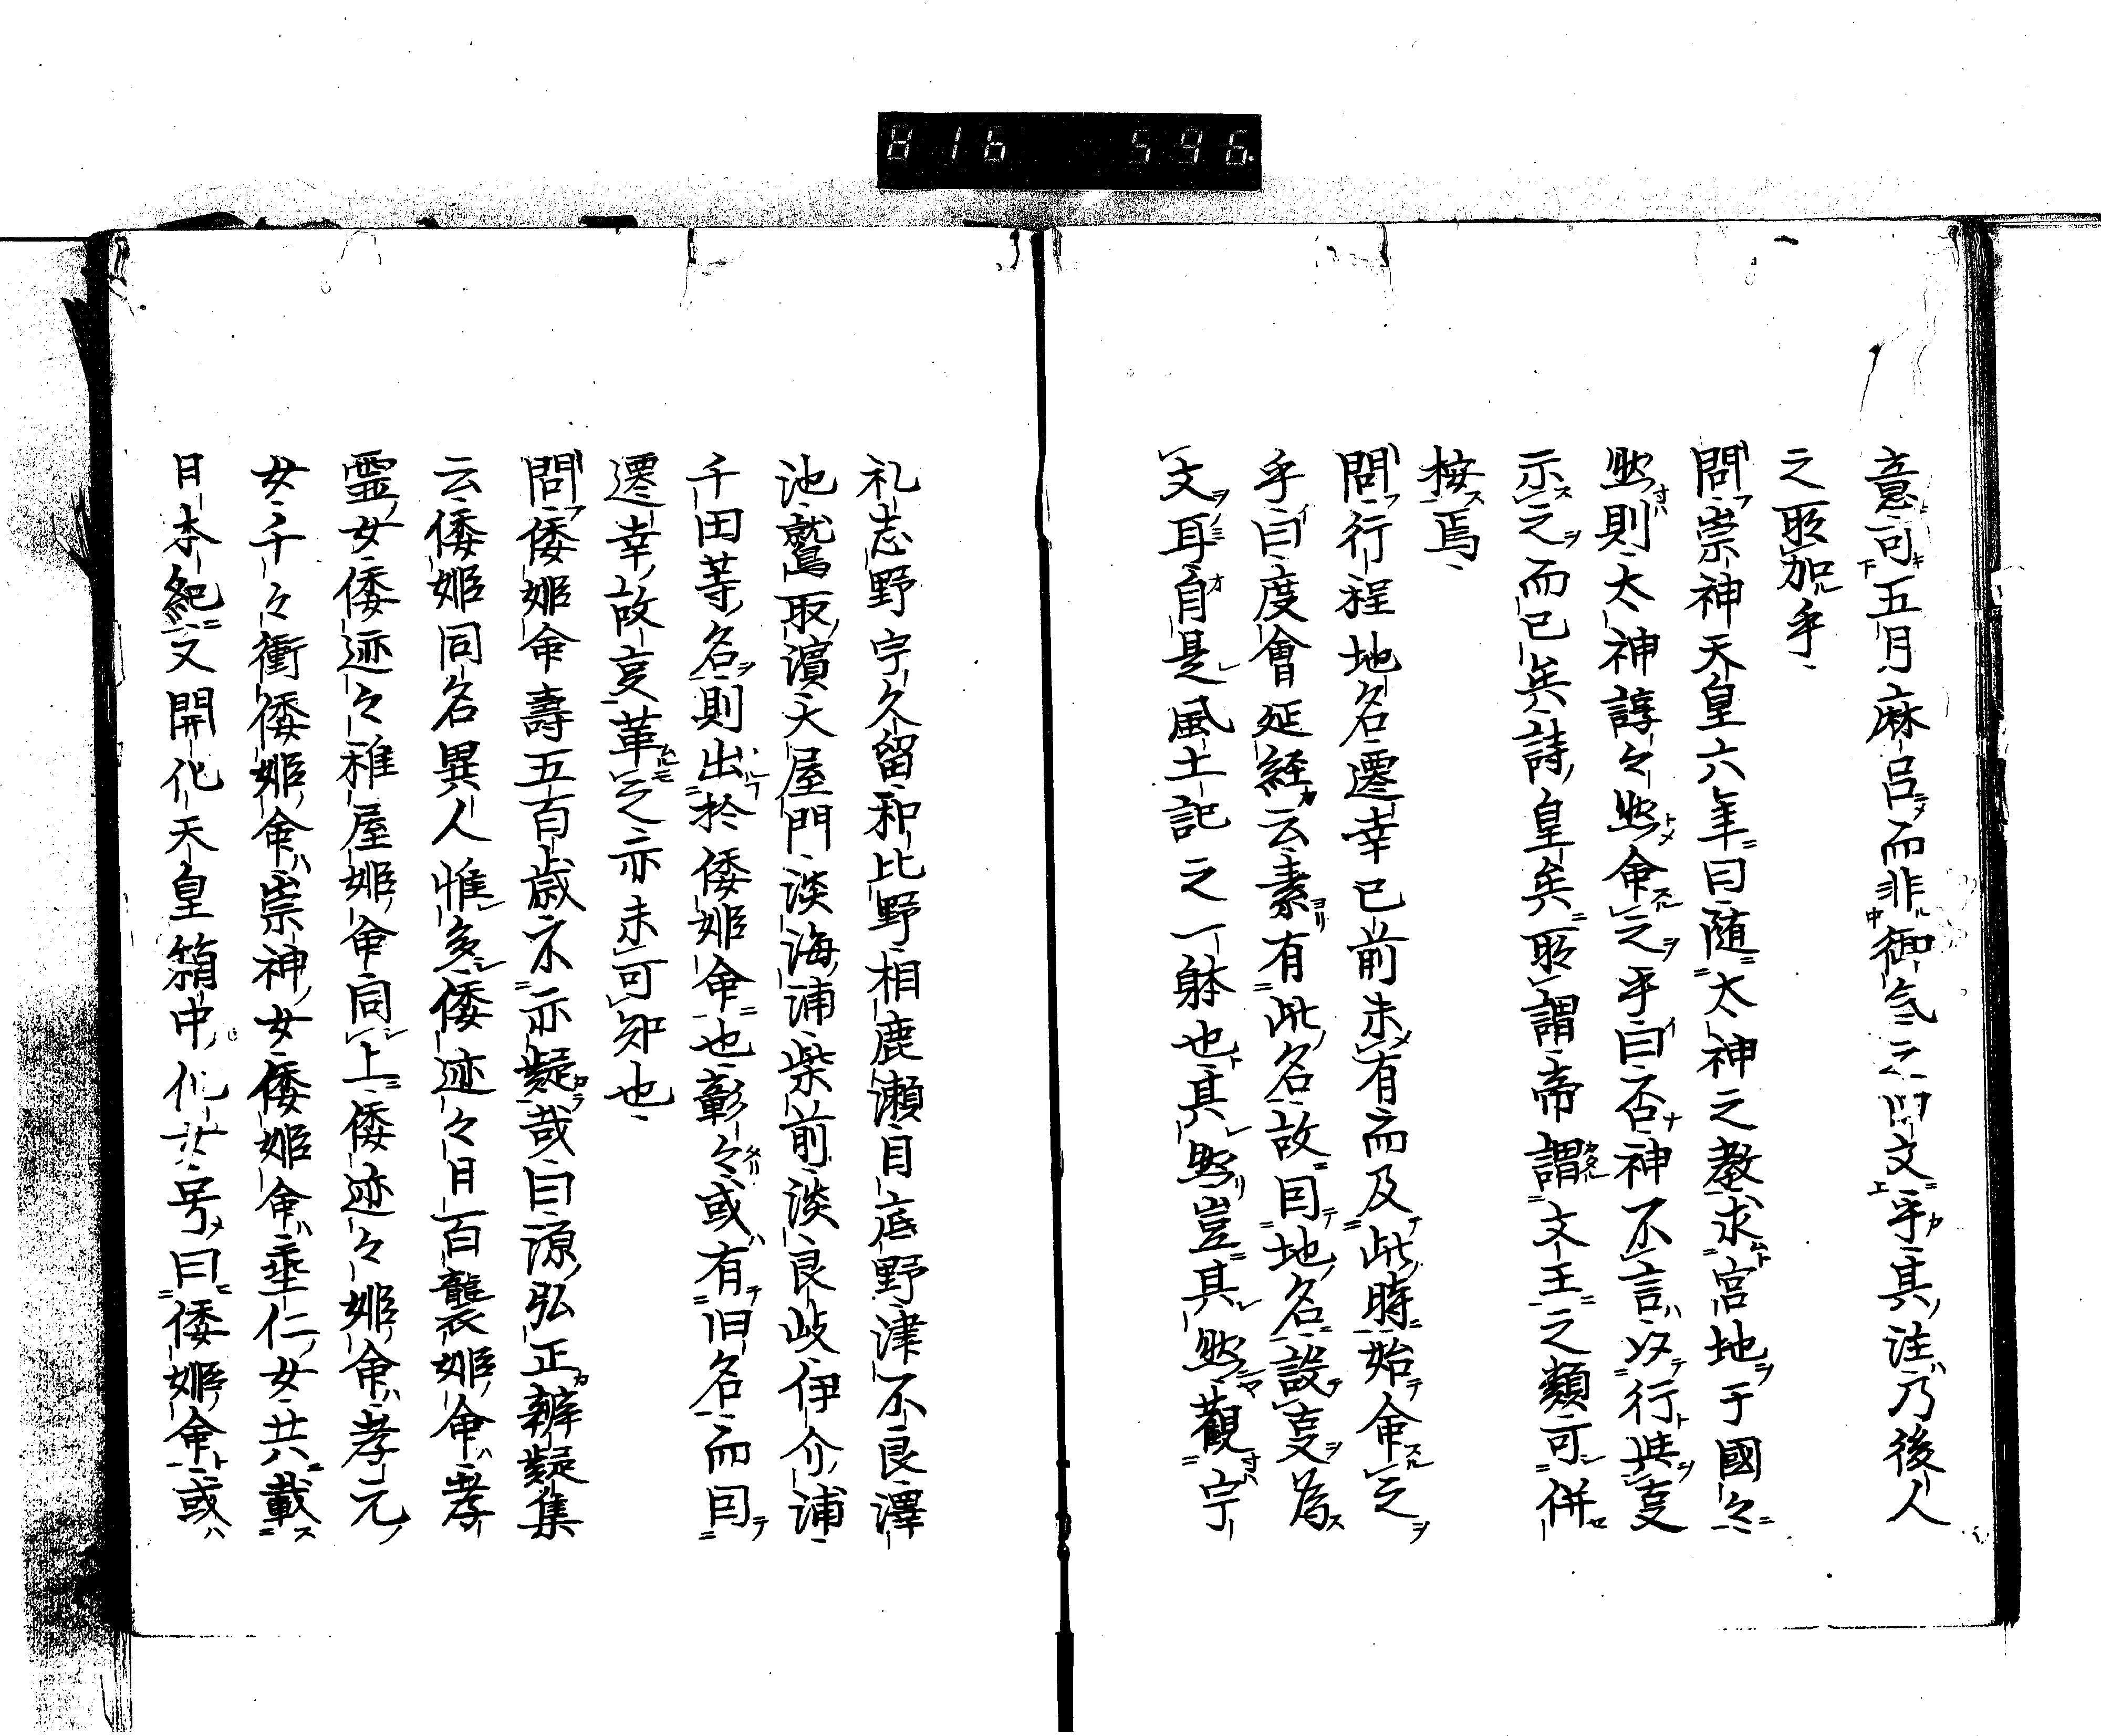 816 596
意可五月麻呂而非御気之門文乎其注乃後人
之所加乎
問崇神天皇六年曰随太神之教求宮地于國々
然則太神諄々然命之乎曰否神不言以行與事
示之而已矣詩皇矣所謂帝謂文王之類可併
按焉
問行程地名遷幸已前未有而及此時始命之
乎曰度會延経云素有此名故因地名設事為
文耳自是風土記之一躰也其然豈其然觀宇
礼志野宇久留和比野相鹿瀬目底野津不良澤
池鷲取濱大屋門淡海浦柴前淡良岐伊介浦
千田等名則出於倭姫命也彰々或有旧名而因
遷幸故事革之亦未可知也
問倭姫命壽五百歳不亦疑哉曰源弘正辨疑集
云倭姫同名異人惟多倭迹々日百襲姫命孝
霊女倭迹々稚屋姫命同上倭迹々姫命孝元
女千々衝倭姫命崇神女倭姫命垂仁女共載
日本紀又開化天皇箱中化女号曰倭姫命或